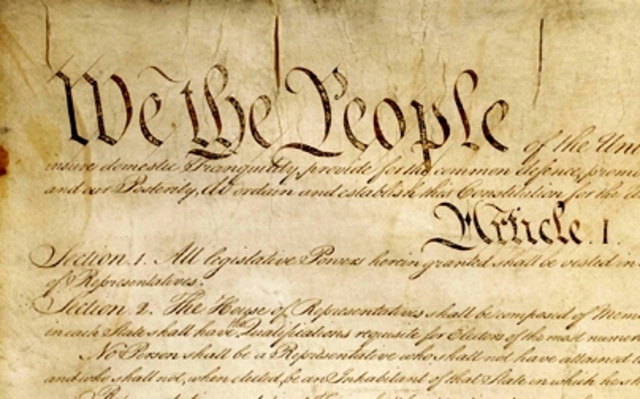 We the People of the Uni
insure domestic Tranquility, provide for the common defence, promo
and our Posterity, do ordain and establish this Constitution for the
Article. I.
Section. 1. All legislative Powers herein granted shall be vested in
of Representatives.
Section. 2. The House of Representatives shall be composed of Mem
in each State shall have Qualifications requisite for Electors of the most numer
No Person shall be a Representative who shall not have attained
and who shall not, when elected, be an Inhabitant of that State in which he sh